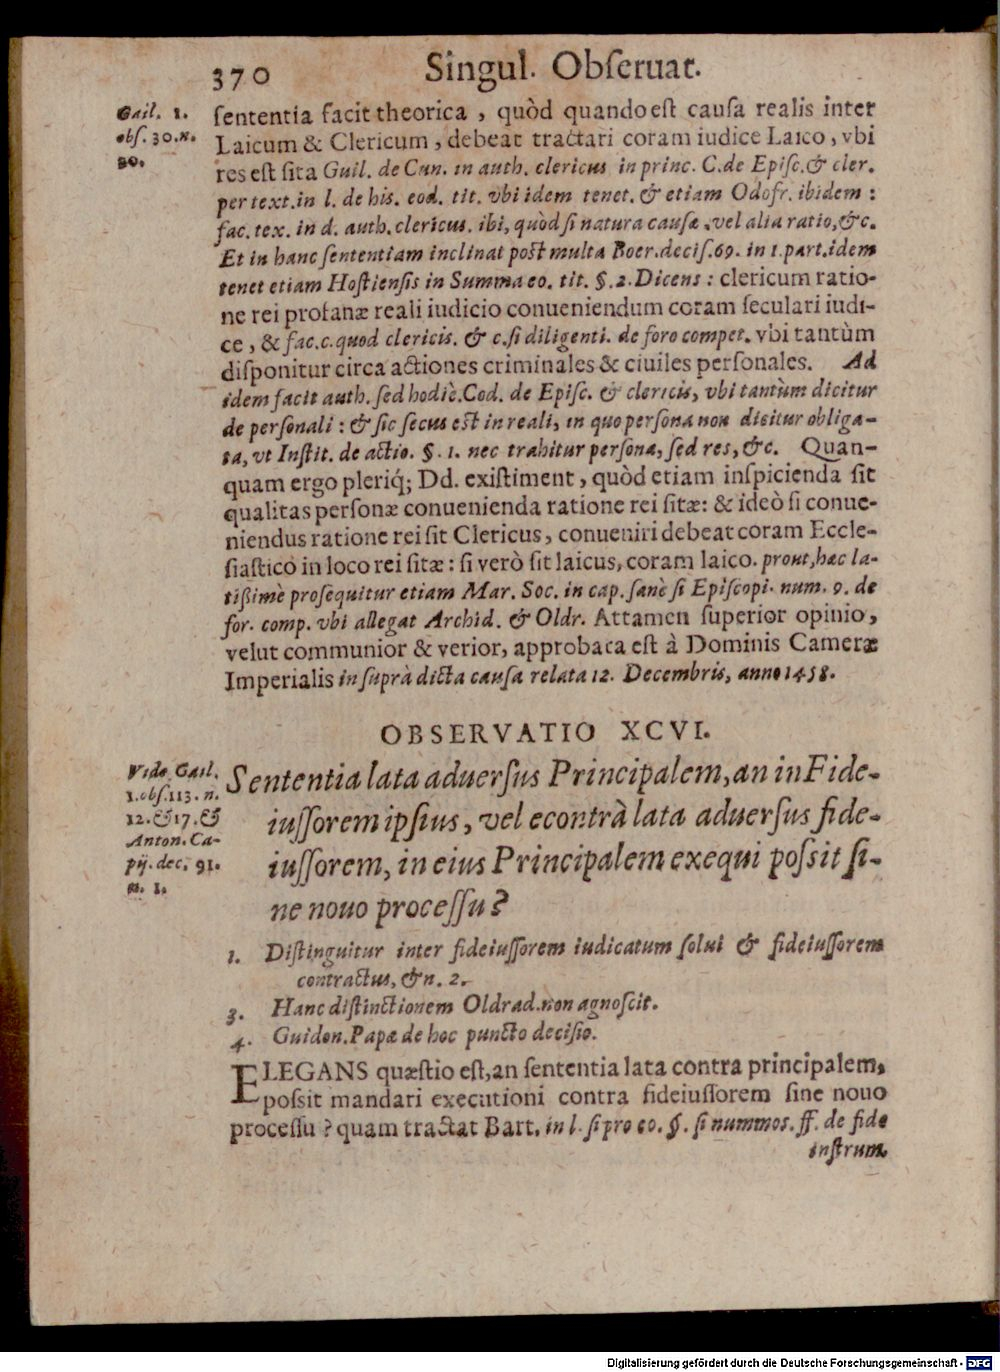 370 Singul. Obſeruat.
Gail. 1.
obſ. 30. n.
20.
ſententia facit theorica, quòd quando eſt cauſa realis inter
Laicum & Clericum, debeat tractari coram iudice Laico, vbi
res eſt ſita Guil. de Cun. in auth. clericus in princ. C. de Epiſc. & cler.
per text. in l. de his. eod. tit. vbi idem tenet. & etiam Odofr. ibidem :
fac. tex. in d. auth. clericus. ibi, quòd ſi natura cauſæ, vel alia ratio, &c.
Et in hanc ſententiam inclinat poſt multa Boer. deciſ. 69. in 1. part. idem
tenet etiam Hoſtienſis in Summa eo. tit. §. 2. Dicens : clericum ratio-
ne rei profanæ reali iudicio conueniendum coram ſeculari iudi-
ce, & fac. c. quod clericis. & c. ſi diligenti. de foro compet. vbi tantùm
diſponitur circa actiones criminales & ciuiles perſonales. Ad
idem facit auth. ſed hodiè. Cod. de Epiſc. & clericis, vbi tantùm dicitur
de perſonali : & ſic ſecus eſt in reali, in quo perſona non dicitur obliga-
ta, vt Inſtit. de actio. §. 1. nec trahitur perſona, ſed res, &c. Quan-
quam ergo pleriq́; Dd. exiſtiment, quòd etiam inſpicienda ſit
qualitas perſonæ conuenienda ratione rei ſitæ: & ideò ſi conue-
niendus ratione rei ſit Clericus, conueniri debeat coram Eccle-
ſiaſtico in loco rei ſitæ: ſi verò ſit laicus, coram laico. prout, hæc la-
tiſſimè proſequitur etiam Mar. Soc. in cap. ſanè ſi Epiſcopi. num. 9. de
for. comp. vbi allegat Archid. & Oldr. Attamen ſuperior opinio,
velut communior & verior, approbata eſt à Dominis Cameræ
Imperialis in ſuprà dicta cauſa relata 12. Decembris, anno 1458.
OBSERVATIO XCVI.
Vide Gail.
1. obſ. 113. n.
12. & 17. &
Anton. Ca-
pij. dec. 91.
n. 1.
Sententia lata aduerſus Principalem, an in Fide-
iuſſorem ipſius, vel econtrà lata aduerſus fide-
iuſſorem, in eius Principalem exequi poſsit ſi-
ne nouo proceſſu?
1. Diſtinguitur inter fideiuſſorem iudicatum ſolui & fideiuſſorem
contractus, & n. 2.
3. Hanc diſtinctionem Oldrad. non agnoſcit.
4. Guidon. Papæ de hoc puncto deciſio.
ELEGANS quæſtio eſt, an ſententia lata contra principalem,
poſsit mandari executioni contra fideiuſſorem ſine nouo
proceſſu? quam tractat Bart. in l. ſi pro eo. §. ſi nummos. ff. de fide
inſtrum.
Digitalisierung gefördert durch die Deutsche Forschungsgemeinschaft - DFG